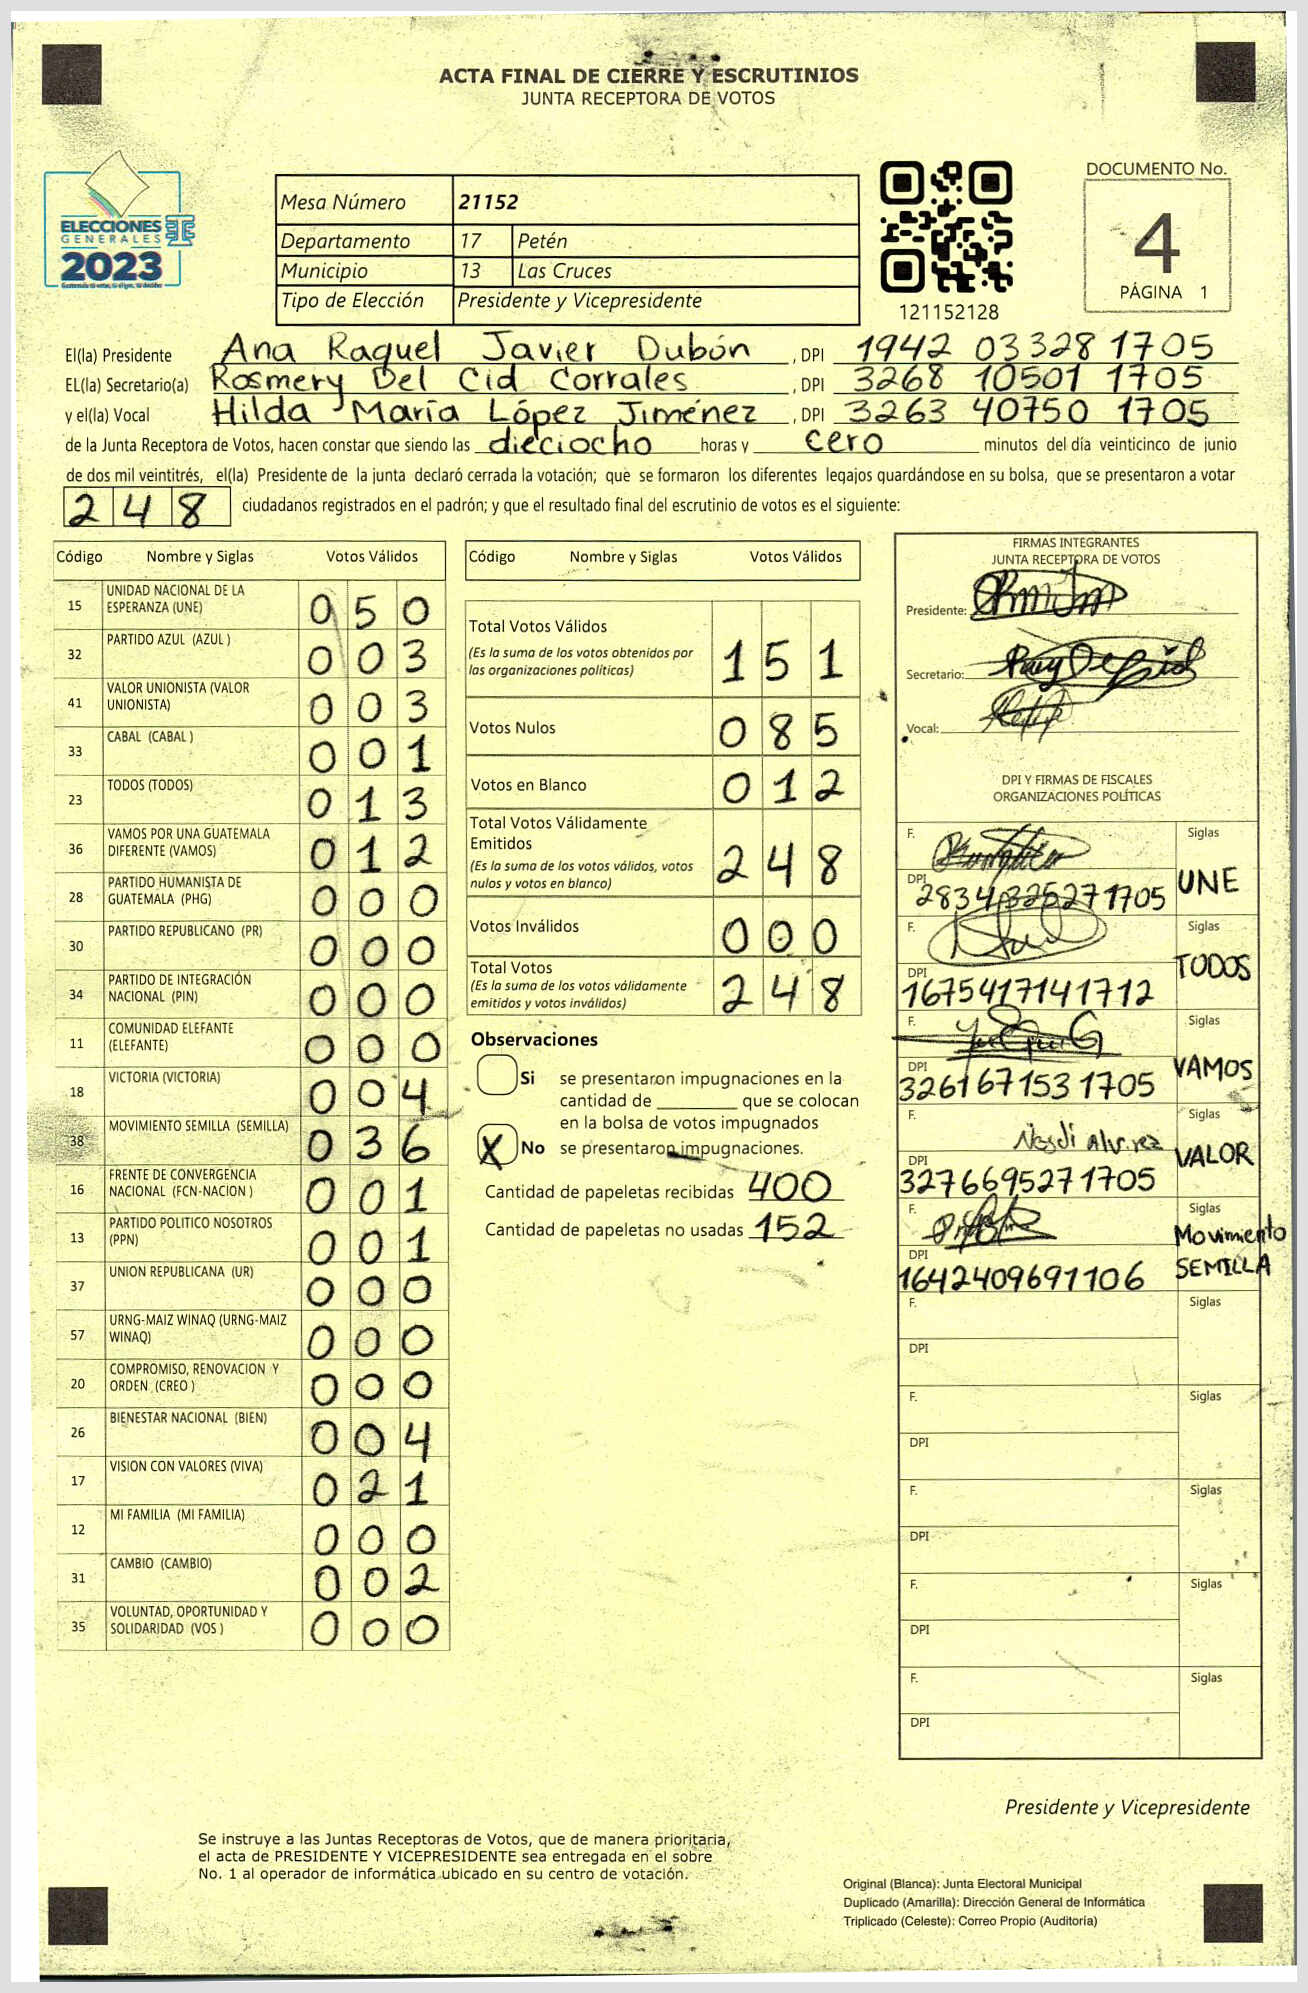 ACTA FINAL DE CIERRE Y ESCRUTINIOS
JUNTA RECEPTORA DE VOTOS
ELECCIONES
GENERALES
2023
Mesa Número 21152
Departamento 17 Petén
Municipio 13 Las Cruces
Tipo de Elección Presidente y Vicepresidente
121152128
DOCUMENTO No.
4
PÁGINA 1
El(la) Presidente Ana Raquel Javier Dubón , DPI 1942 03328 1705
EL(la) Secretario(a) Rosmery Del Cid Corrales , DPI 3268 10501 1705
y el(la) Vocal Hilda María López Jiménez , DPI 3263 40750 1705
de la Junta Receptora de Votos, hacen constar que siendo las dieciocho horas y cero minutos del día veinticinco de junio
de dos mil veintitrés, el(la) Presidente de la junta declaró cerrada la votación; que se formaron los diferentes legajos quardándose en su bolsa, que se presentaron a votar
248 ciudadanos registrados en el padrón; y que el resultado final del escrutinio de votos es el siguiente:
Código Nombre y Siglas Votos Válidos
15 UNIDAD NACIONAL DE LA
ESPERANZA (UNE) 050
32 PARTIDO AZUL (AZUL ) 003
41 VALOR UNIONISTA (VALOR
UNIONISTA) 003
33 CABAL (CABAL ) 001
23 TODOS (TODOS) 013
36 VAMOS POR UNA GUATEMALA
DIFERENTE (VAMOS) 012
28 PARTIDO HUMANISTA DE
GUATEMALA (PHG) 000
30 PARTIDO REPUBLICANO (PR) 000
34 PARTIDO DE INTEGRACIÓN
NACIONAL (PIN) 000
11 COMUNIDAD ELEFANTE
(ELEFANTE) 000
18 VICTORIA (VICTORIA) 004
38 MOVIMIENTO SEMILLA (SEMILLA) 036
16 FRENTE DE CONVERGENCIA
NACIONAL (FCN-NACION ) 001
13 PARTIDO POLITICO NOSOTROS
(PPN) 001
37 UNION REPUBLICANA (UR) 000
57 URNG-MAIZ WINAQ (URNG-MAIZ
WINAQ) 000
20 COMPROMISO, RENOVACION Y
ORDEN (CREO ) 000
26 BIENESTAR NACIONAL (BIEN) 004
17 VISION CON VALORES (VIVA) 021
12 MI FAMILIA (MI FAMILIA) 000
31 CAMBIO (CAMBIO) 002
35 VOLUNTAD, OPORTUNIDAD Y
SOLIDARIDAD (VOS ) 000
Código Nombre y Siglas Votos Válidos
Total Votos Válidos 151
(Es la suma de los votos obtenidos por
las organizaciones políticas)
Votos Nulos 085
Votos en Blanco 012
Total Votos Válidamente
Emitidos 248
(Es la suma de los votos válidos, votos
nulos y votos en blanco)
Votos Inválidos 000
Total Votos 248
(Es la suma de los votos válidamente
emitidos y votos inválidos)
Observaciones
Si se presentaron impugnaciones en la
cantidad de ________ que se colocan
en la bolsa de votos impugnados
X No se presentaron impugnaciones.
Cantidad de papeletas recibidas 400
Cantidad de papeletas no usadas 152
FIRMAS INTEGRANTES
JUNTA RECEPTORA DE VOTOS
Presidente:
Secretario:
Vocal:
DPI Y FIRMAS DE FISCALES
ORGANIZACIONES POLÍTICAS
F. Siglas
DPI 2834325271705 UNE
F. Siglas
DPI 1675417141712 TODOS
F. Siglas
DPI 3261671531705 VAMOS
F. Siglas
DPI 3276695271705 VALOR
F. Siglas
DPI 1642409691106 Movimiento
SEMILLA
F. Siglas
DPI
F. Siglas
DPI
F. Siglas
DPI
F. Siglas
DPI
F. Siglas
DPI
Presidente y Vicepresidente
Se instruye a las Juntas Receptoras de Votos, que de manera prioritaria,
el acta de PRESIDENTE Y VICEPRESIDENTE sea entregada en el sobre
No. 1 al operador de informática ubicado en su centro de votación.
Original (Blanca): Junta Electoral Municipal
Duplicado (Amarilla): Dirección General de Informática
Triplicado (Celeste): Correo Propio (Auditoría)